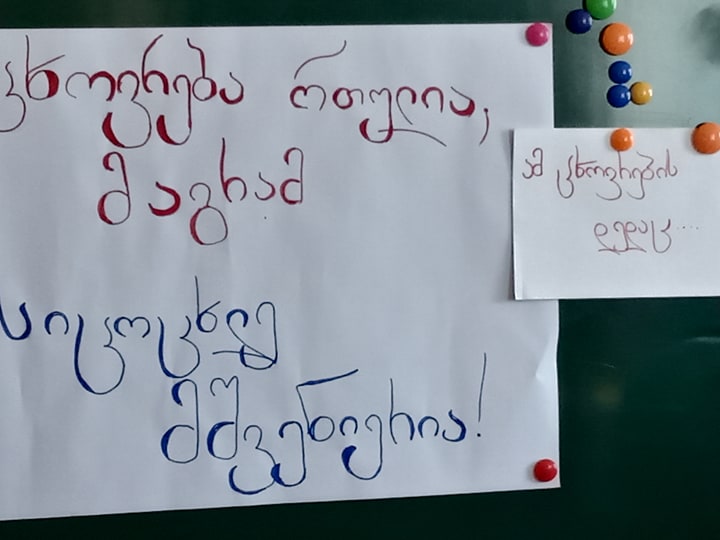 ცხოვრება რთულია,
მაგრამ
სიცოცხლე
მშვენიერია!
ამ ცხოვრების
დედაც....